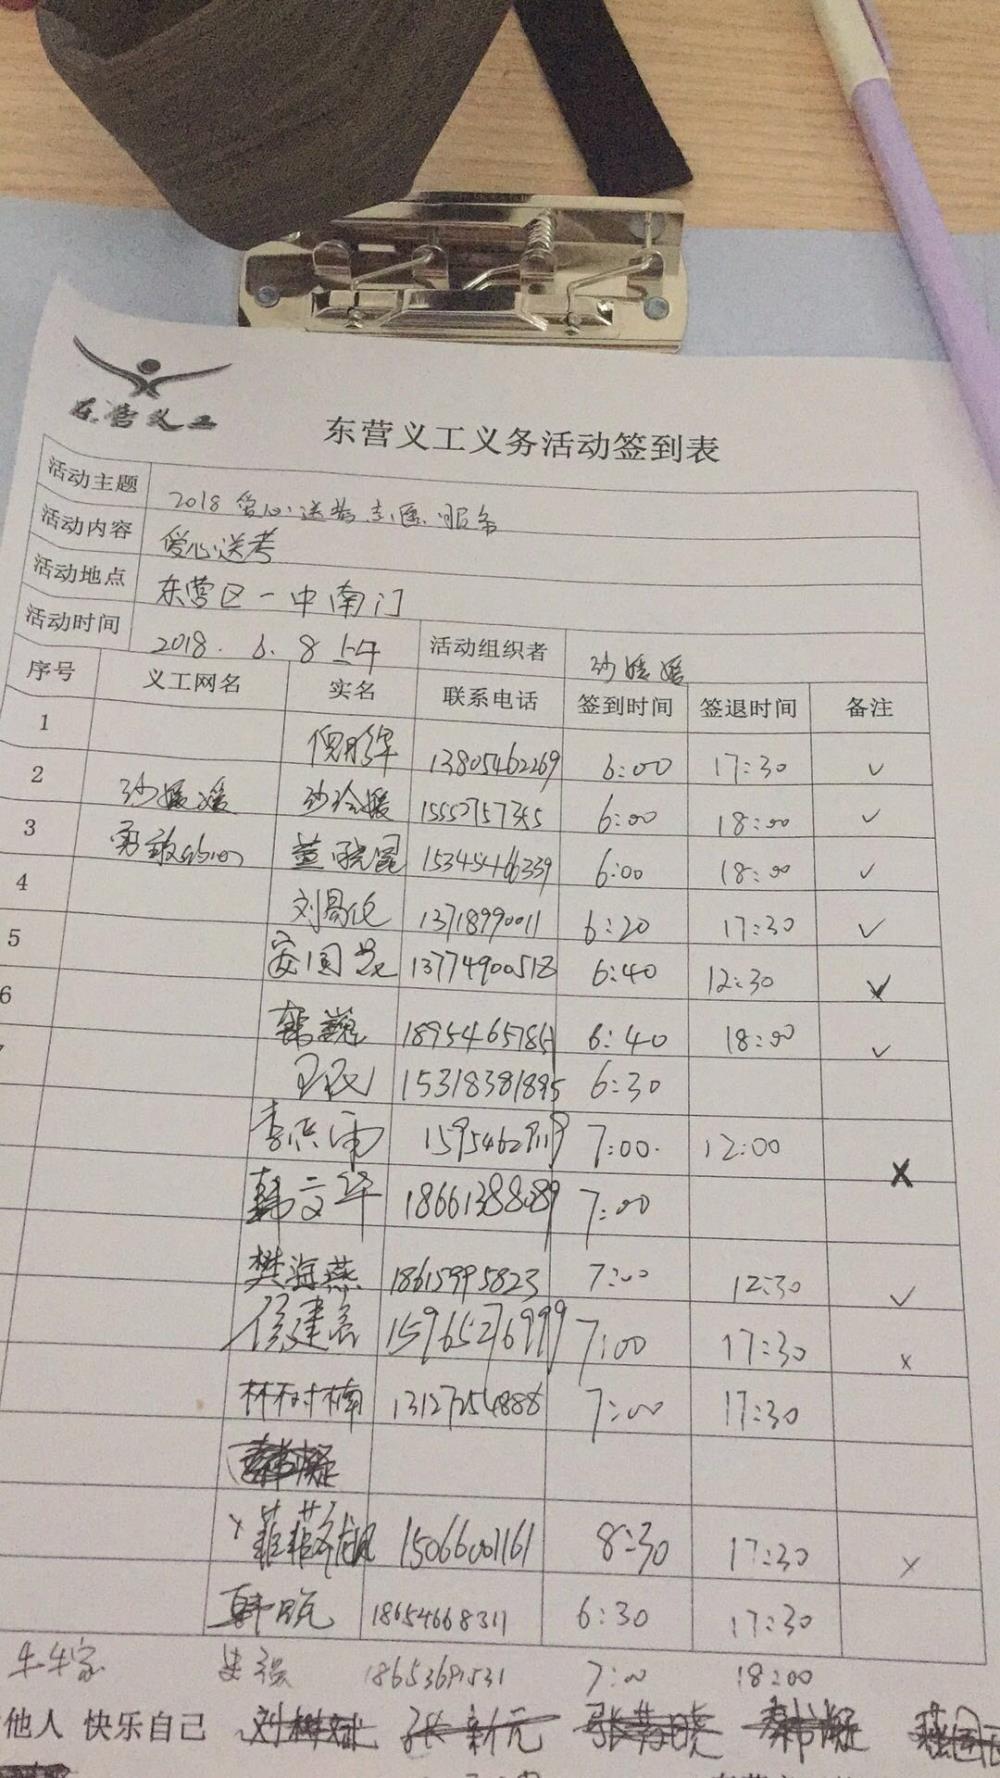 东营义工
东营义工义务活动签到表
活动主题 2018爱心送考志愿服务
活动内容 爱心送考
活动地点 东营区一中南门
活动时间 2018.6.8上午 活动组织者 沙媛媛
序号 义工网名 实名 联系电话 签到时间 签退时间 备注
1 13805462269 6:00 17:30 ✓
2 沙媛媛 沙玲媛 15552757355 6:00 18:00 ✓
3 勇敢的心 董晓昆 15345466339 6:00 18:00 ✓
4 刘易化 13718990011 6:20 17:30 ✓
5 13774900518 6:40 12:30 ✓
6 韩巍 1895465785 6:40 18:00 ✓
王民 15318381895 6:30
15954629119 7:00. 12:00 X
韩文华 18661388089 7:00
樊海燕 18615995823 7:00 12:30 ✓
15965276999 7:00 17:30 x
林树楠 13127254888 7:00 17:30
15066001161 8:30 17:30 x
韩晓 18654668311 6:30 17:30
牛牛家 18653691531 7:00 18:00
他人 快乐自己